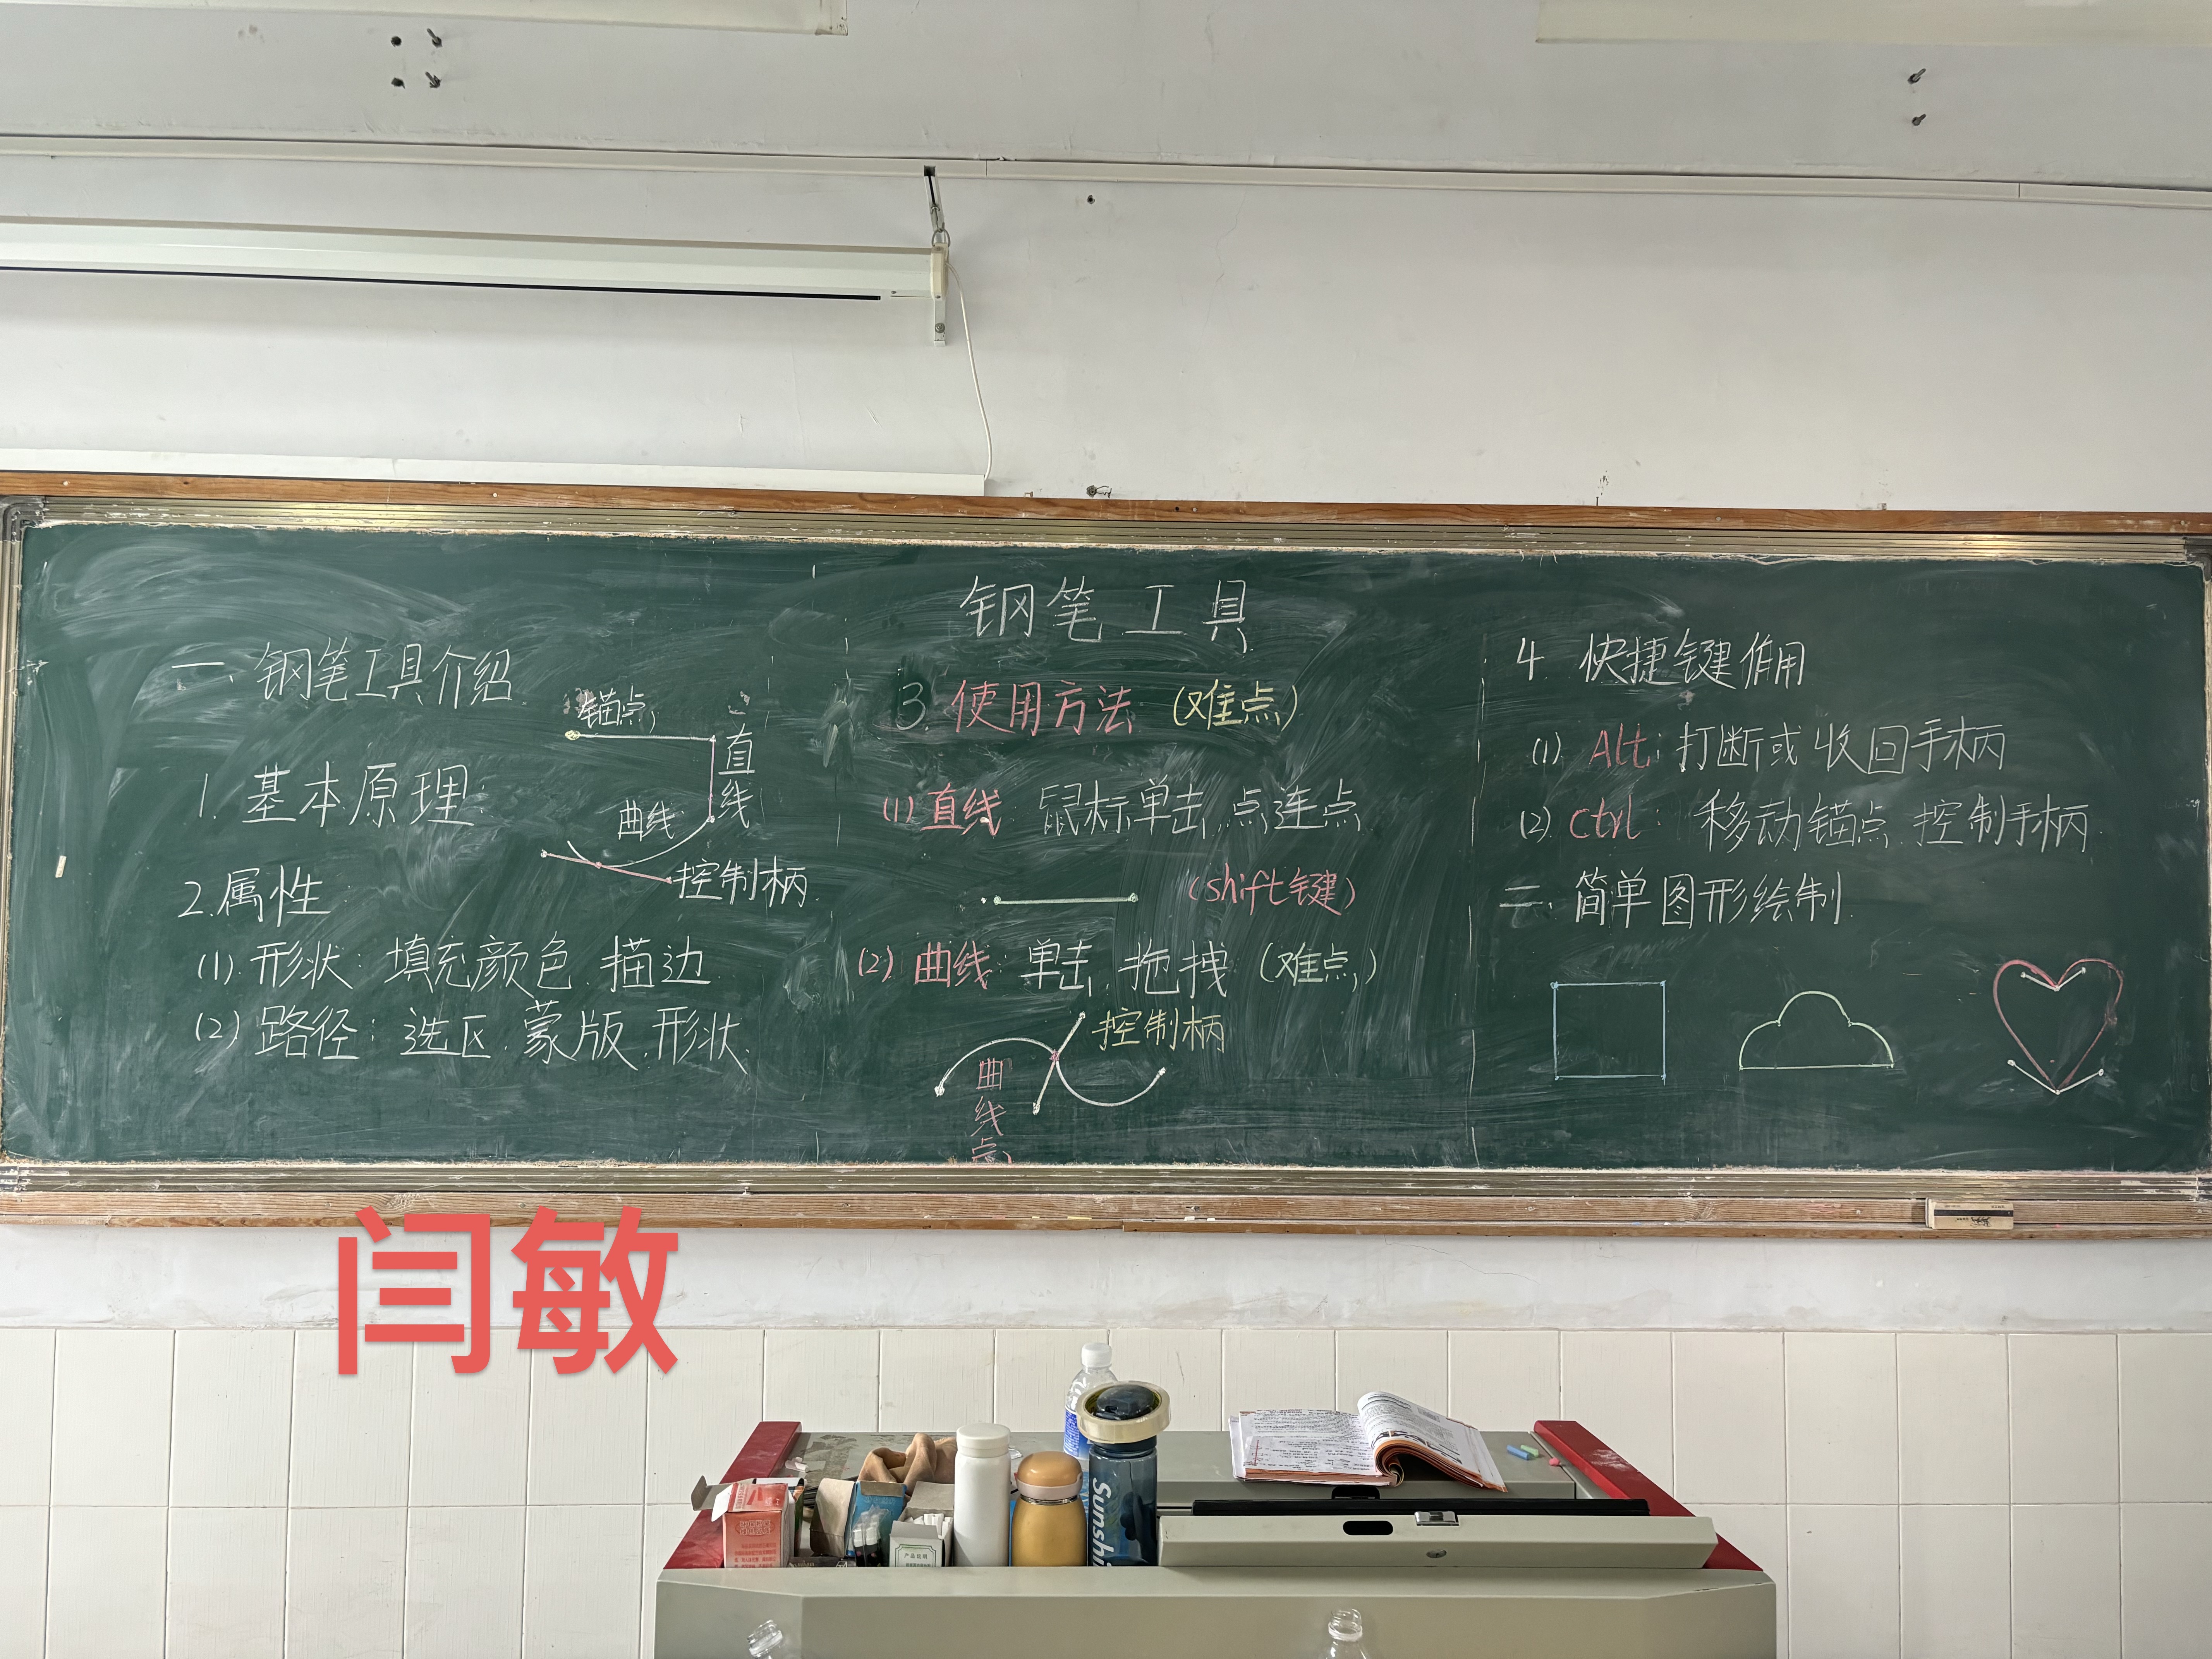 钢笔工具
一、钢笔工具介绍
锚点
直线
1. 基本原理:
曲线
控制柄
2.属性:
(1).形状: 填充颜色、描边
(2) 路径: 选区、蒙版、形状
3. 使用方法 (难点)
(1) 直线: 鼠标单击、点连点
(shift键)
(2) 曲线: 单击、拖拽 (难点)
控制柄
曲线点
4. 快捷键作用
(1) Alt: 打断或收回手柄
(2) Ctrl: 移动锚点、控制手柄
二、简单图形绘制
闫敏
Sunshi
产品说明